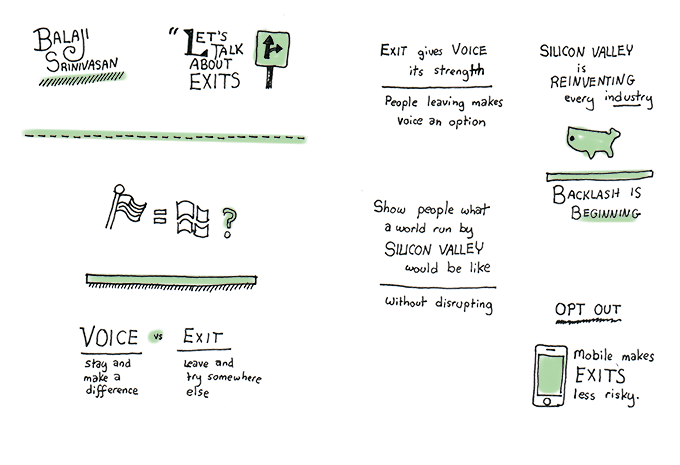 BALAJI
SRINIVASAN
"LET'S
TALK
ABOUT
EXITS
=
?
VOICE vs EXIT
stay and
make a
difference
Leave and
try somewhere
else
EXIT gives VOICE
its strength
People leaving makes
voice an option
Show people what
a world run by
SILICON VALLEY
would be like
without disrupting
SILICON VALLEY
is
REINVENTING
every industry
BACKLASH IS
BEGINNING
OPT OUT
Mobile makes
EXITS
less risky.